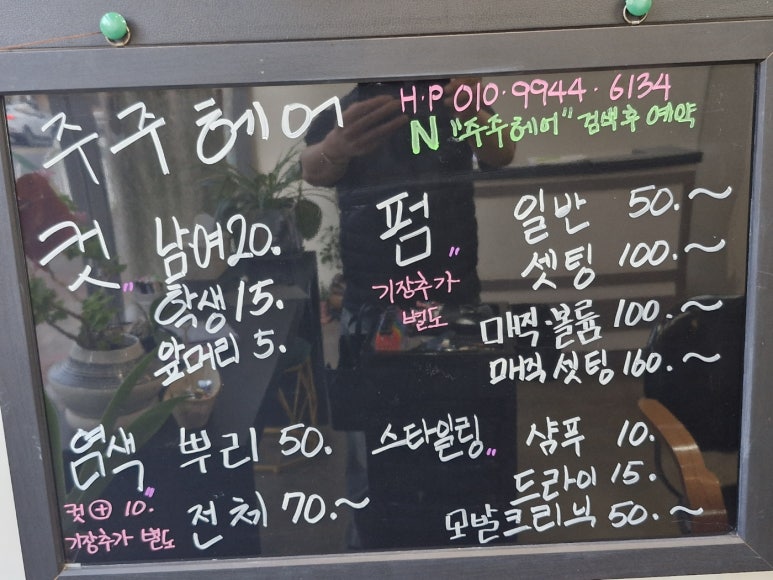 주주헤어
H.P 010.9944.6134
N "주주헤어" 검색후 예약
컷" 남여 20.
학생 15.
앞머리 5.
펌" 일반 50.~
기장추가
별도
셋팅 100.~
매직·볼륨 100.~
매직셋팅 160.~
염색" 뿌리 50.
컷⊕10.
기장추가 별도
전체 70.~
스타일링" 샴푸 10.
드라이 15.
모발크리닉 50.~